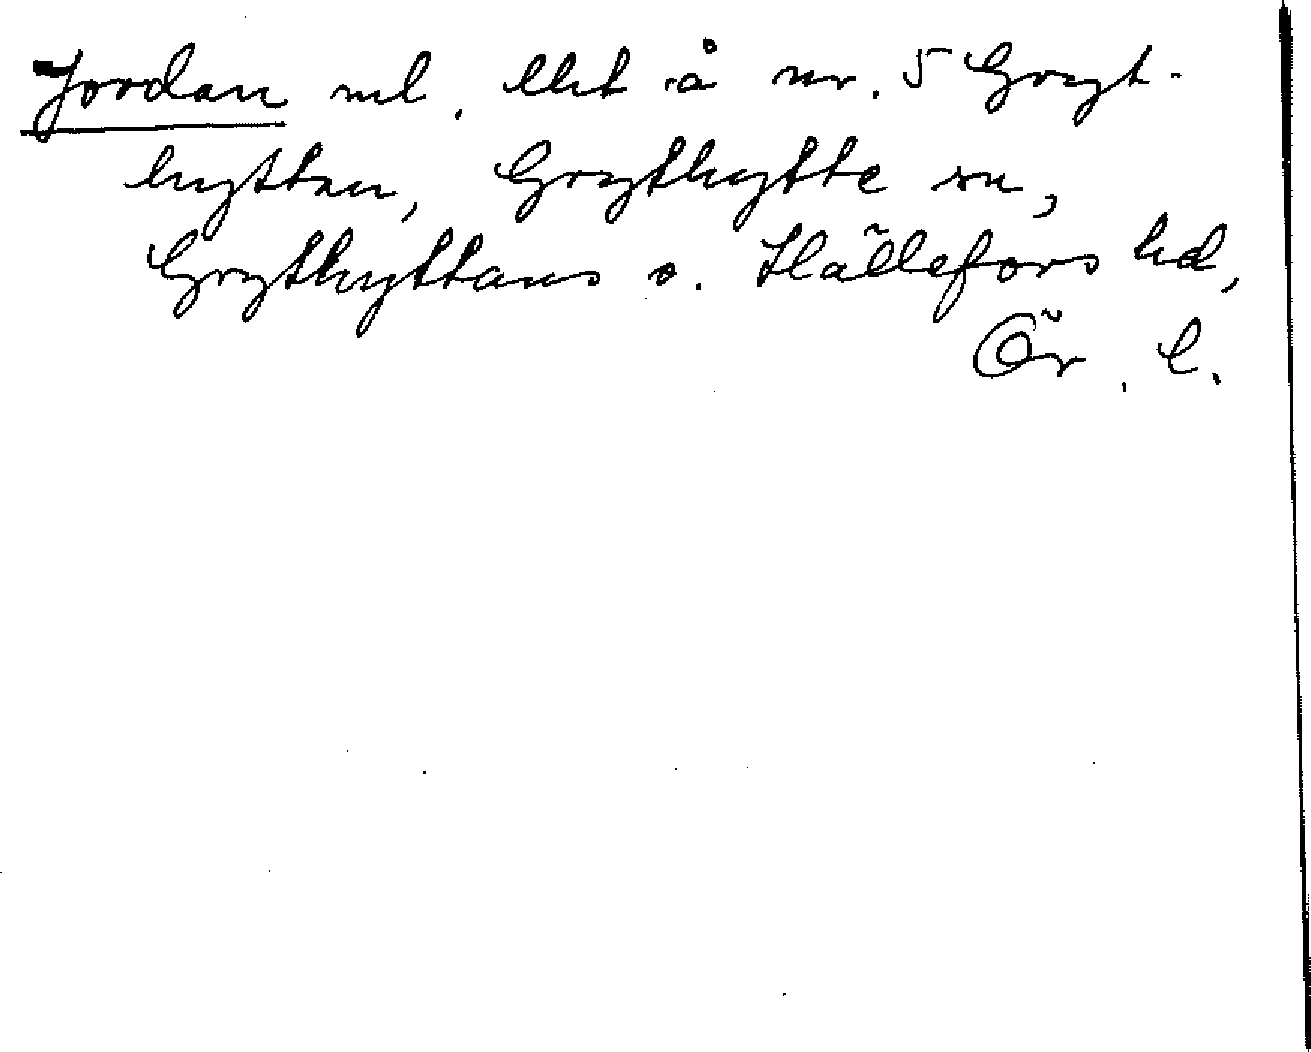 Jordan ml. lht å nr. 5 Gryt-
hyttan, Grythytte sn,
Grythyttans o. Hällefors hd,
Ör. l.